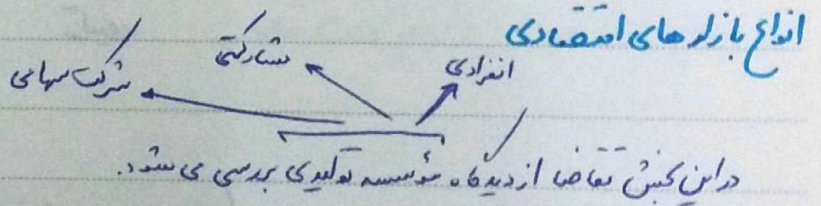 انواع بازارهای اقتصادی
انفرادی
مشارکتی
شرکت سهامی
در این بخش تقاضا از دیدگاه مؤسسه تولیدی بررسی می شود.